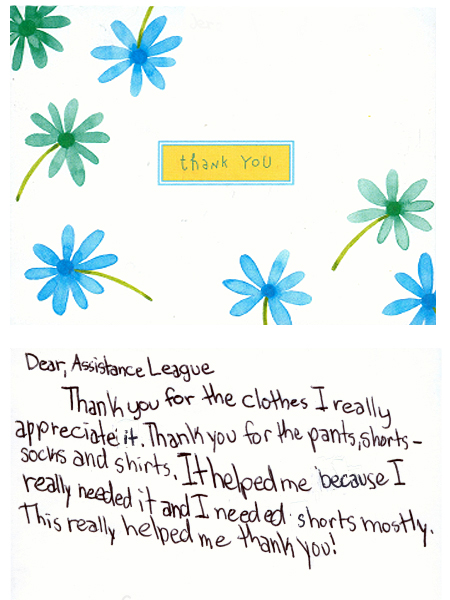 thank you
Dear, Assistance League
Thank you for the clothes I really
appreciate it. Thank you for the pants, shorts-
socks and shirts. It helped me because I
really needed it and I needed shorts mostly.
This really helped me thank you!